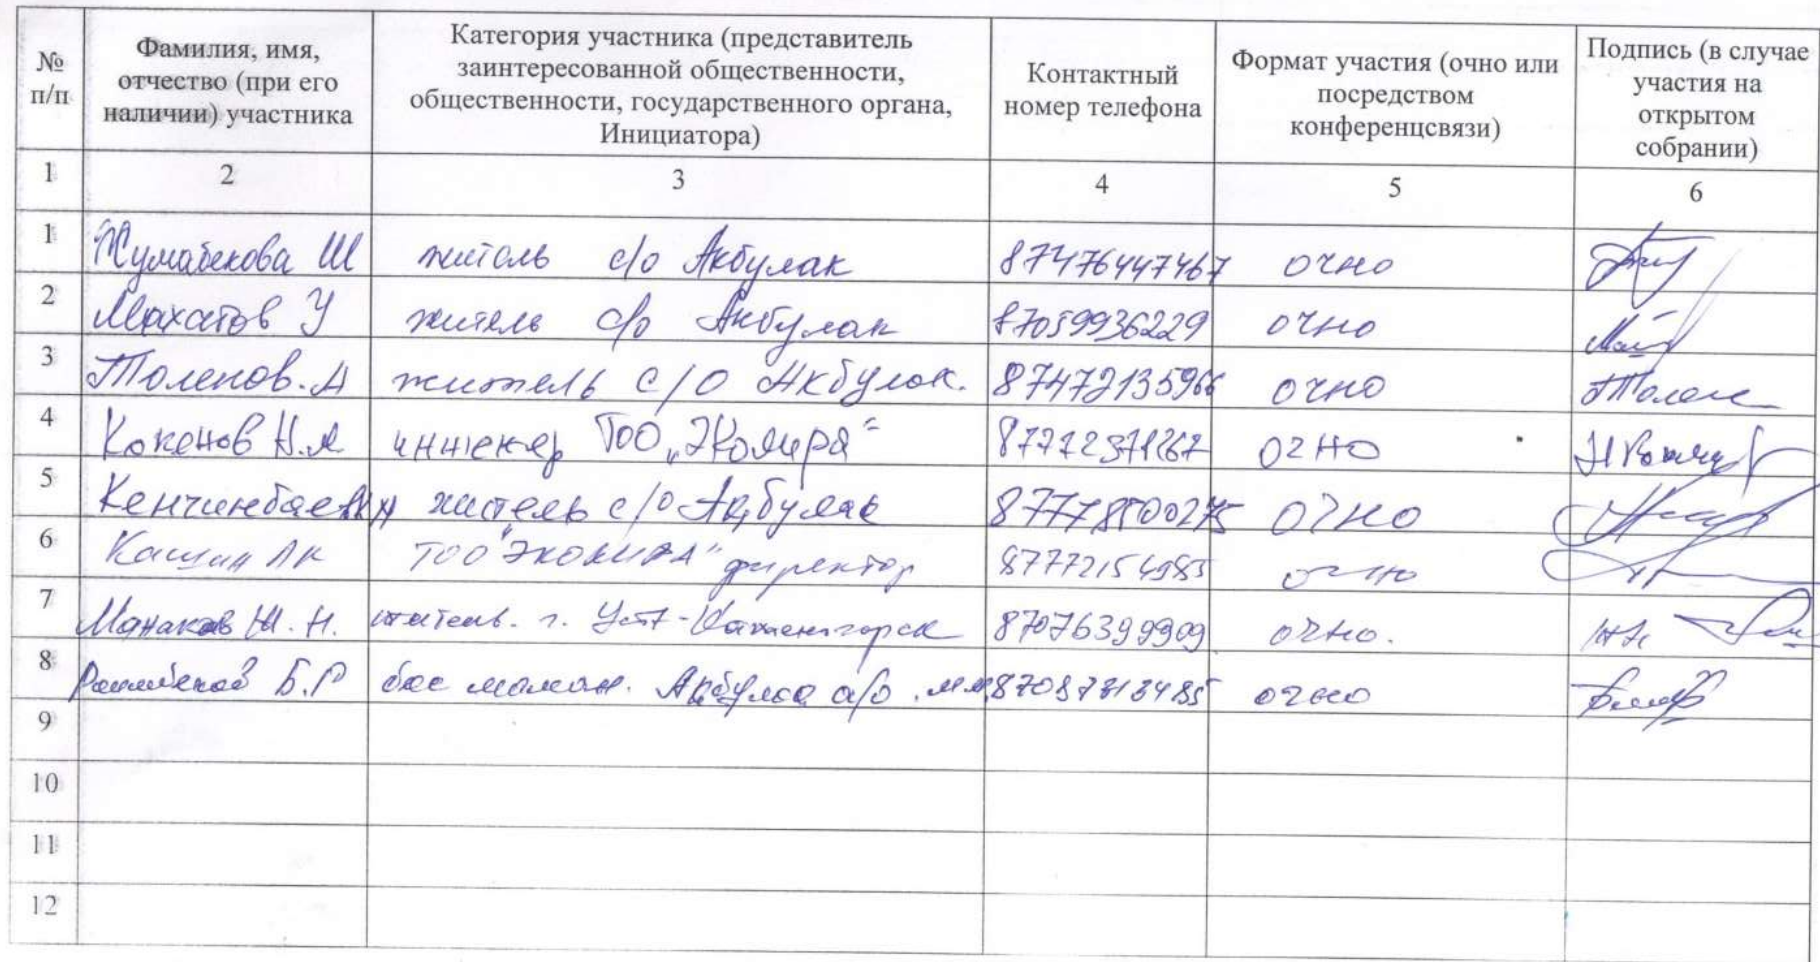 № п/п
Фамилия, имя, отчество (при его наличии) участника
Категория участника (представитель заинтересованной общественности, общественности, государственного органа, Инициатора)
Контактный номер телефона
Формат участия (очно или посредством конференцсвязи)
Подпись (в случае участия на открытом собрании)
1 2 3 4 5 6
1 Жумабекова Ш житель с/о Акбулак 87476447467 очно
2 Махатов У житель с/о Акбулак 87059936229 очно
3 Толенов.А житель с/о Акбулак. 87472135966 очно
4 Кокенов Н.А инженер ТОО „Экомира" 87772371267 очно
5 житель с/о Акбулак 87778500275 очно
6 Кашин ЛК ТОО "ЭКОМИРА" директор 87772154985 очно
7 Манаков Ш.Н. житель. г. Уст-Каменогорск 87076399909 очно.
8 Б.Р бас маман. Акбулак а/о 87087313485 очно
9
10
11
12